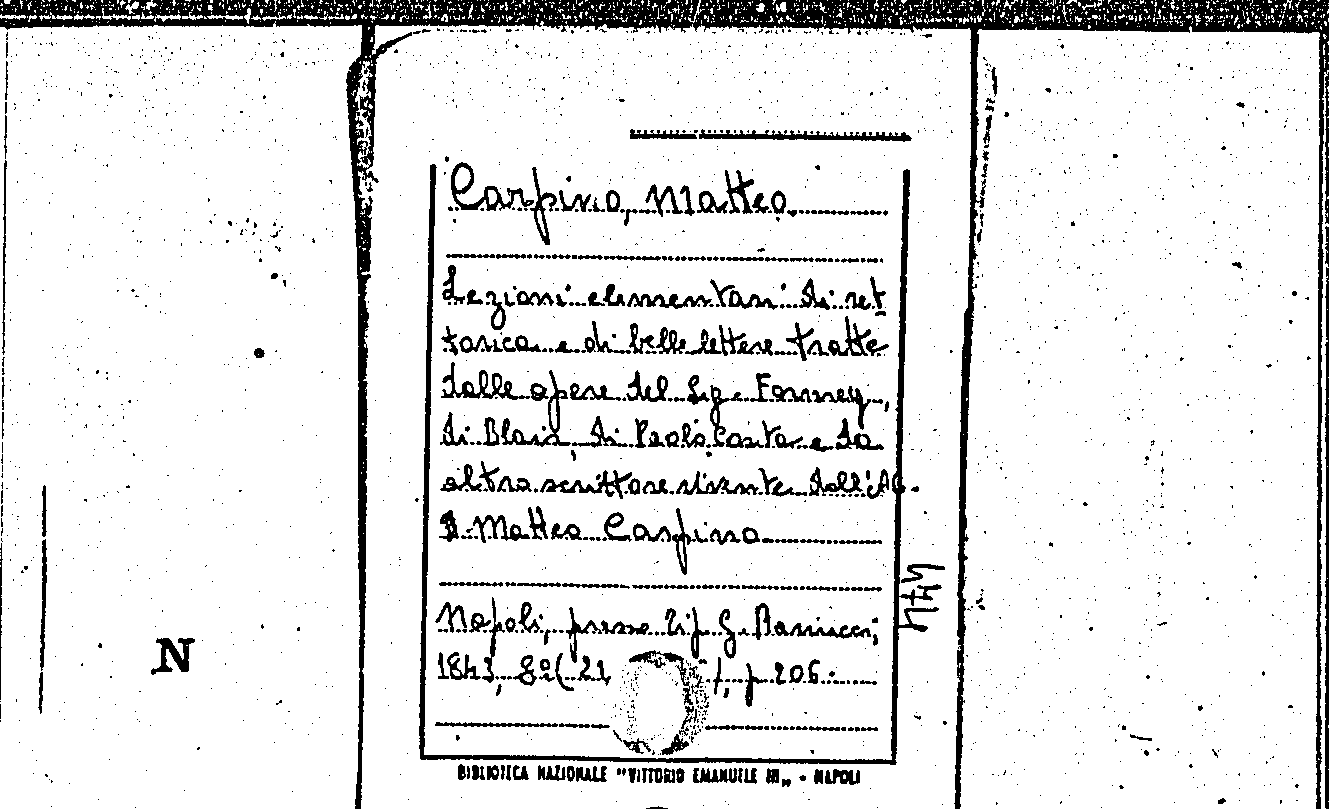 Carpino, Matteo
Lezioni elementari di ret
torica e di belle lettere tratte
dalle opere del Sig. Formey,
di Blair, di Paolo Costa e da
altro scrittore vivente dall'Ab.
D. Matteo Carpino
Napoli, presso Tip. G. Ranucci;
1843, 8º( 21, ), p 206.
N
BIBLIOTECA NAZIONALE "VITTORIO EMANUELE III„ - NAPOLI